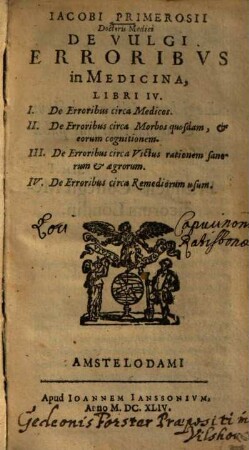 IACOBI PRIMEROSII
Doctoris Medici
DE VULGI
ERRORIBVS
in MEDICINA,
LIBRI IV.
I. De Erroribus circa Medicos.
II. De Erroribus circa Morbos quosdam, &
eorum cognitionem.
III. De Erroribus circa Victus rationem sano-
rum & ægrorum.
IV. De Erroribus circa Remediorum usum.
Loci
Capucinorum
Ratisbonæ
AMSTELODAMI
Apud IOANNEM IANSSONIVM,
Anno M. DC. XLIV.
Gedeonis Forster Præpositi in
Vilshoven